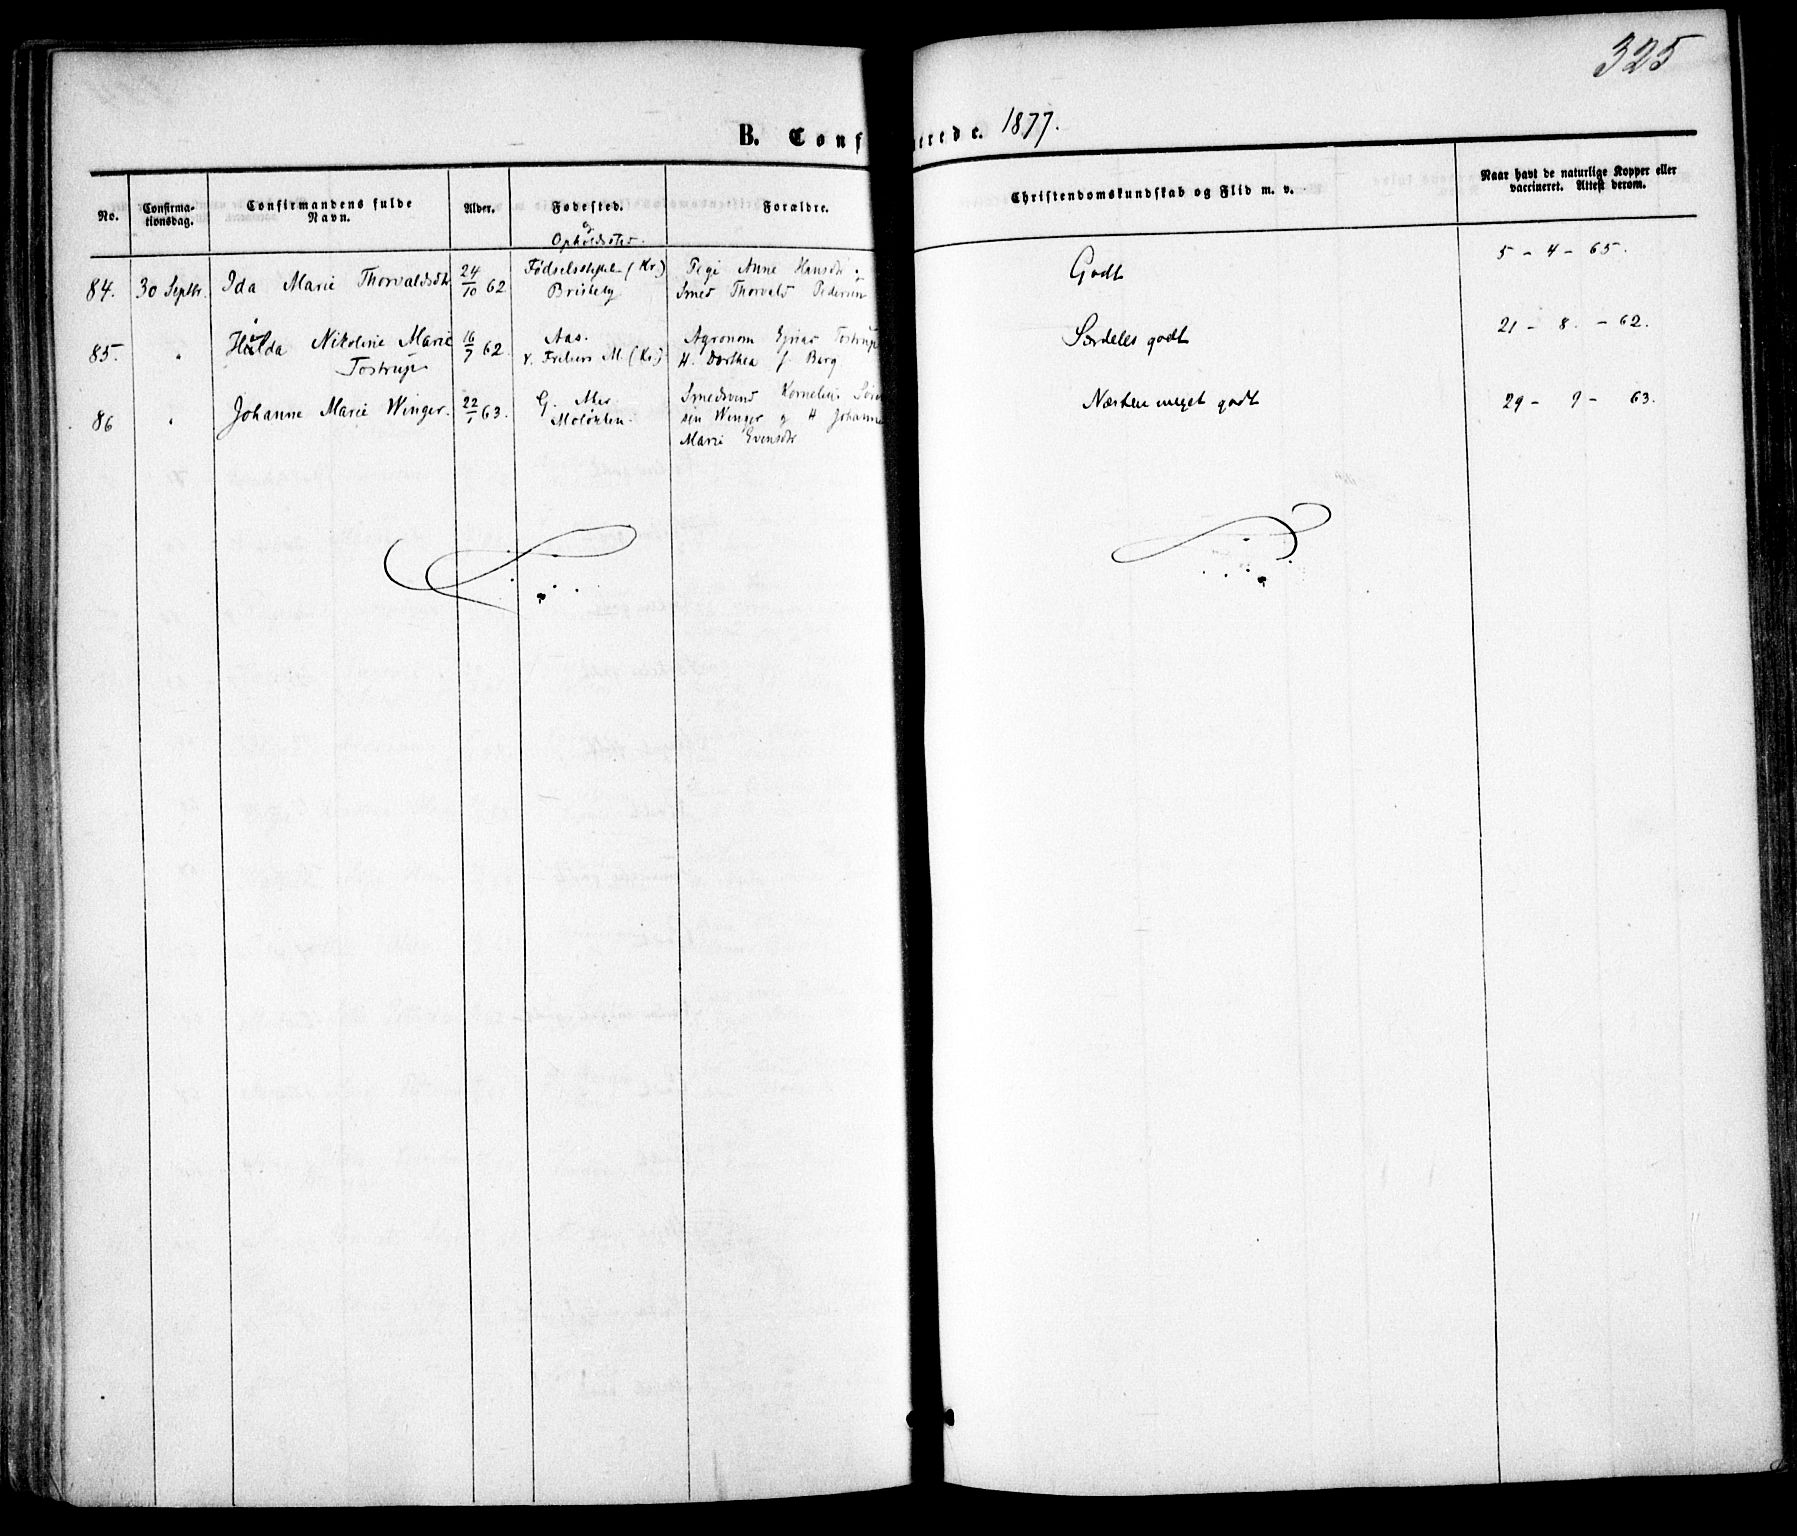 325
B. Conf erede. 1877.
No. Confirma-tionsdag. Confirmandens fulde Navn. Alder. Fødested. Forældre. Christendomskundskab og Flid m. v. Naar havt de naturlige Kopper eller vaccineret. Attest derom.
og Opholdsted.
84. 30 Septbr. Ida Marie Thorvaldsdtr 24/10 62 Fødselsstift. (Kr.) Pige Anne Hansdtr og Godt 5 - 4 - 65.
Smed Thorvald Pedersen
85. " Hulda Nikoline Marie 16/7 62. Aas. Agronom Ejnar Tostrup Særdeles godt 21 - 8. - 62.
Tostrup v. Frebers M. (Kr.) H. Dorthea f. Berg
86 " Johanne Marie Winger. 22/1 63. G. Mer Smedsvend Kornelius Sören Næsten meget godt 29 - 9 - 63.
sen Winger og H Johanne
Marie Evensdtr